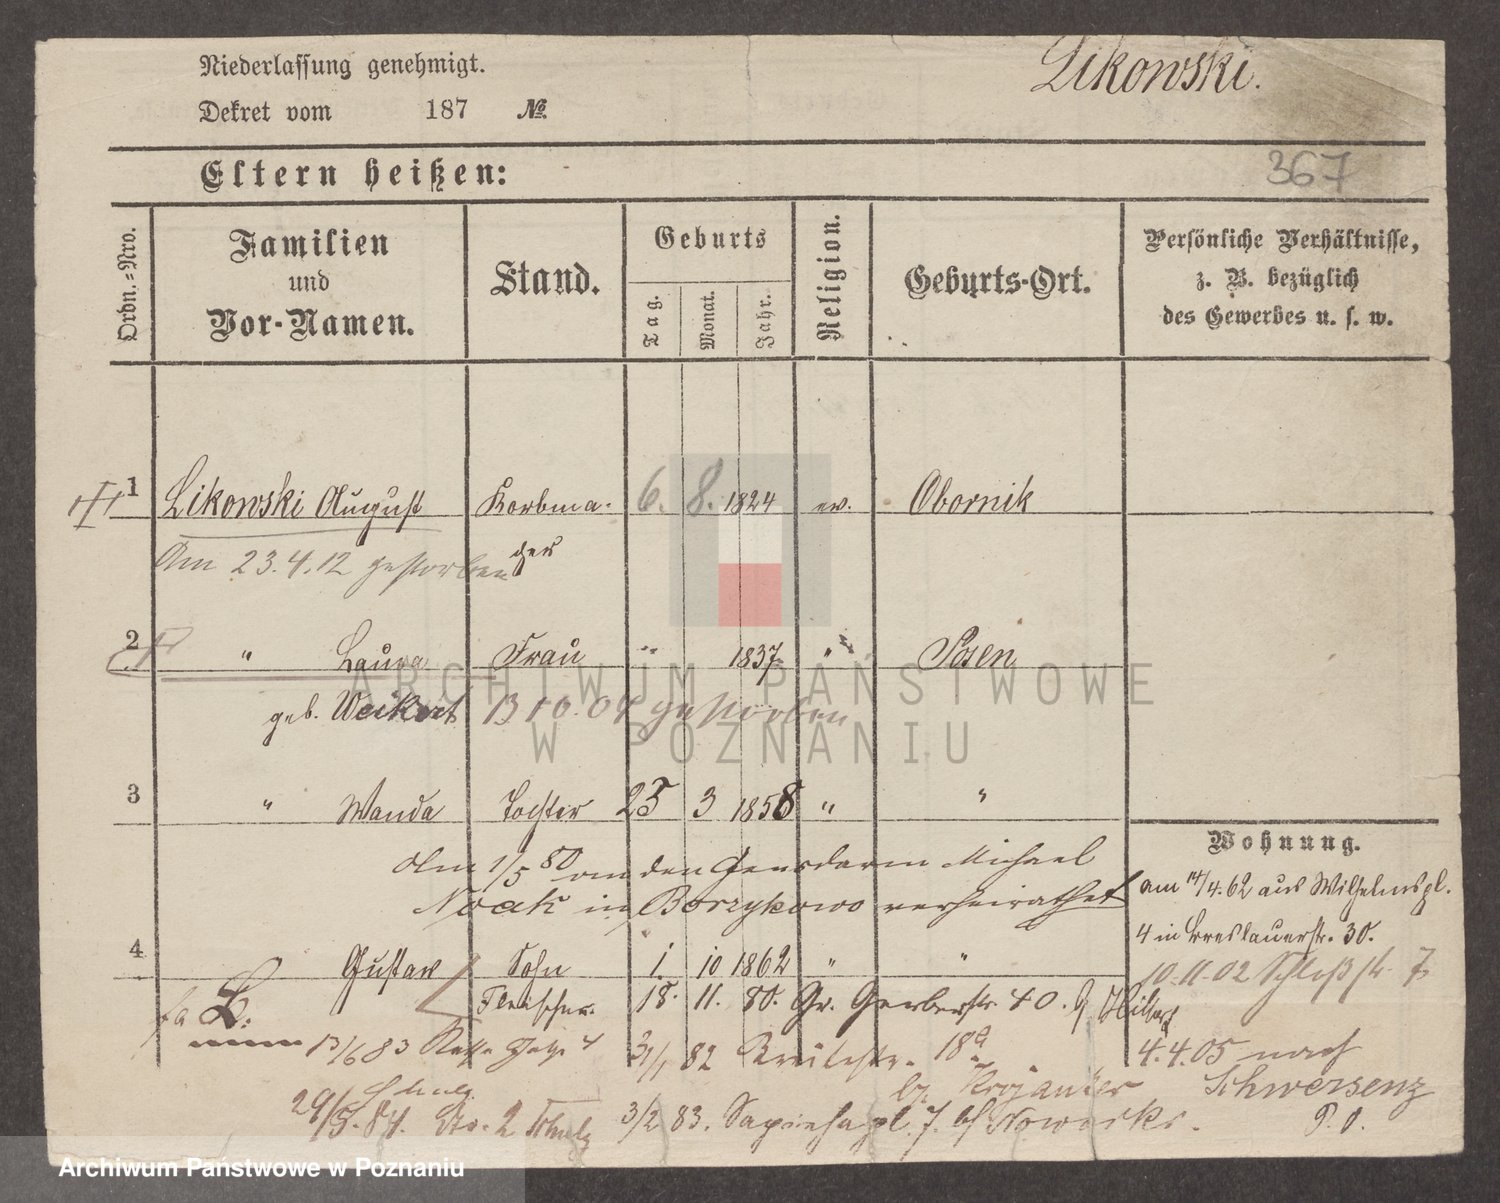 Niederlassung genehmigt.
Likowski.
Dekret vom 187 №
Eltern heißen:
367
Ordn.=Nro.
Familien
und
Vor-Namen.
Stand.
Geburts
Tag.
Monat.
Jahr.
Religion.
Geburts-Ort.
Persönliche Verhältnisse,
z. B. bezüglich
des Gewerbes u. s. w.
1 Likowski August Korbma- 6. 8. 1824 ev. Obornik
cher
Am 23.4.12 gestorben
2 " Laura Frau 1837 " Posen
geb. Weikert 13 10. 04 gestorben
ARCHIWUM PAŃSTWOWE
W POZNANIU
3 " Wanda Tochter 25 3 1858 " "
Wohnung.
Am 1/5 80 an den Gensdarm Michael
Noak in Borzykowo verheirathet
am 14/4.62 aus Wilhelmspl.
4 in Breslauerstr. 30.
4 Gustav Sohn 1. 10 1862 " "
10.11.02 Schloßstr. 7
Fleischer. 18. 11. 80. Gr. Gerberstr. 40.
L.
13/6 83 31/1 82 Breitestr. 18a
4.4.05 nach
Schwersenz
29/5.84. No. 2 Schulz 3/2 83. Sapiehapl. 7. b/
P. O.
Archiwum Państwowe w Poznaniu